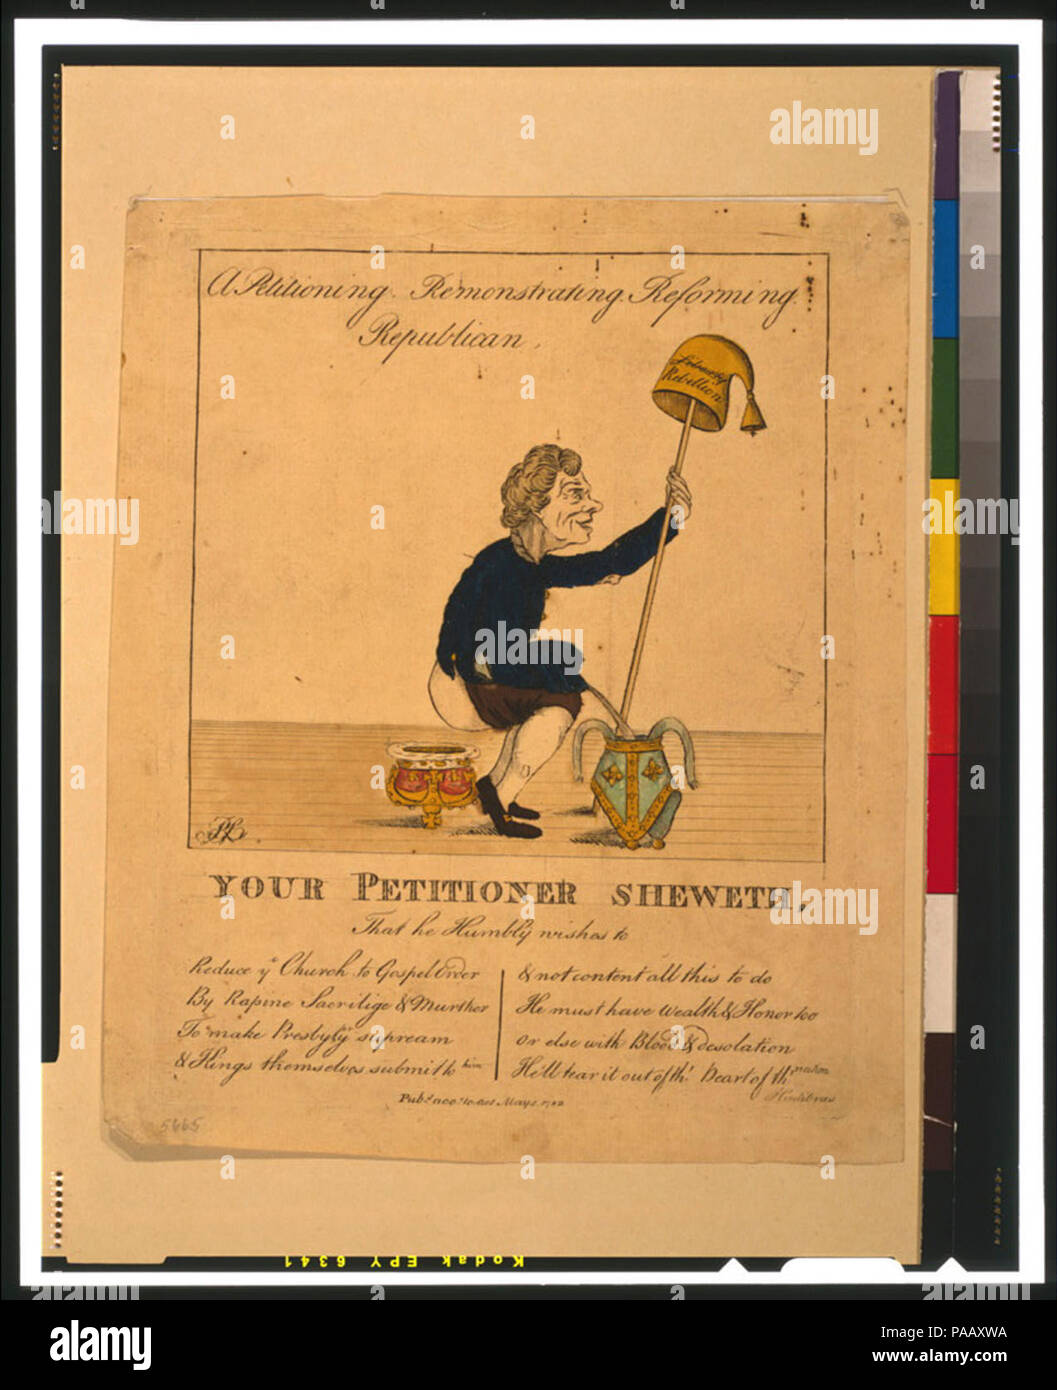 A Petitioning. Remonstrating. Reforming.
Republican.
Liberty
Rebellion
YOUR PETITIONER SHEWETH,
That he Humbly wishes to
Reduce yᵉ Church to Gospel Order
By Rapine Sacrilige & Murther
To make Presbytʸ supream
& Kings themselves submit to him
& not content all this to do
He must have Wealth & Honor too
or else with Blood & desolation
He'll tear it out of th' Heart of th' nation
Hudibras
Pubᵈ accᵍ to Act May
5665
Kodak EPY 6341
alamy
alamy
alamy
alamy
Image ID: PAAXWA
www.alamy.com